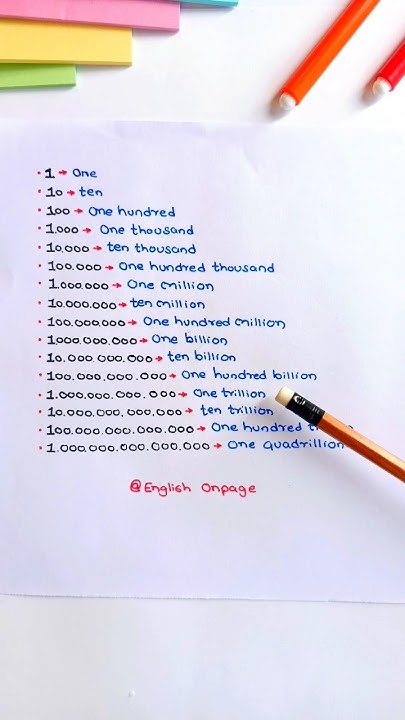 • 1 → One
• 10 → ten
• 100 → One hundred
• 1,000 → One thousand
• 10,000 → ten thousand
• 100.000 → One hundred thousand
• 1.000.000 → One million
• 10.000.000 → ten million
• 100.000.000 → One hundred million
• 1.000.000.000 → One billion
• 10.000.000.000 → ten billion
• 100.000.000.000 → One hundred billion
• 1.000.000.000.000 → One trillion
• 10.000.000.000.000 → ten trillion
• 100.000.000.000.000 → One hundred
• 1.000.000.000.000.000 → One quadrillion
@English Onpage